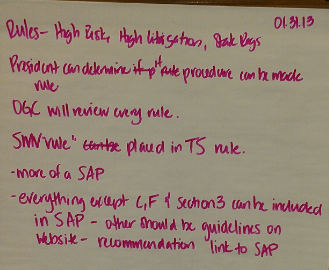 01.31.13
Rules - High Risk, High Litigation, State Regs
President can determine if procedure can be made
rule
OGC will review every rule.
rule" can be placed in TS rule.
- more of a SAP
- everything except C, F & Section 3 can be included
in SAP - other should be guidelines on
Website - recommendation link to SAP